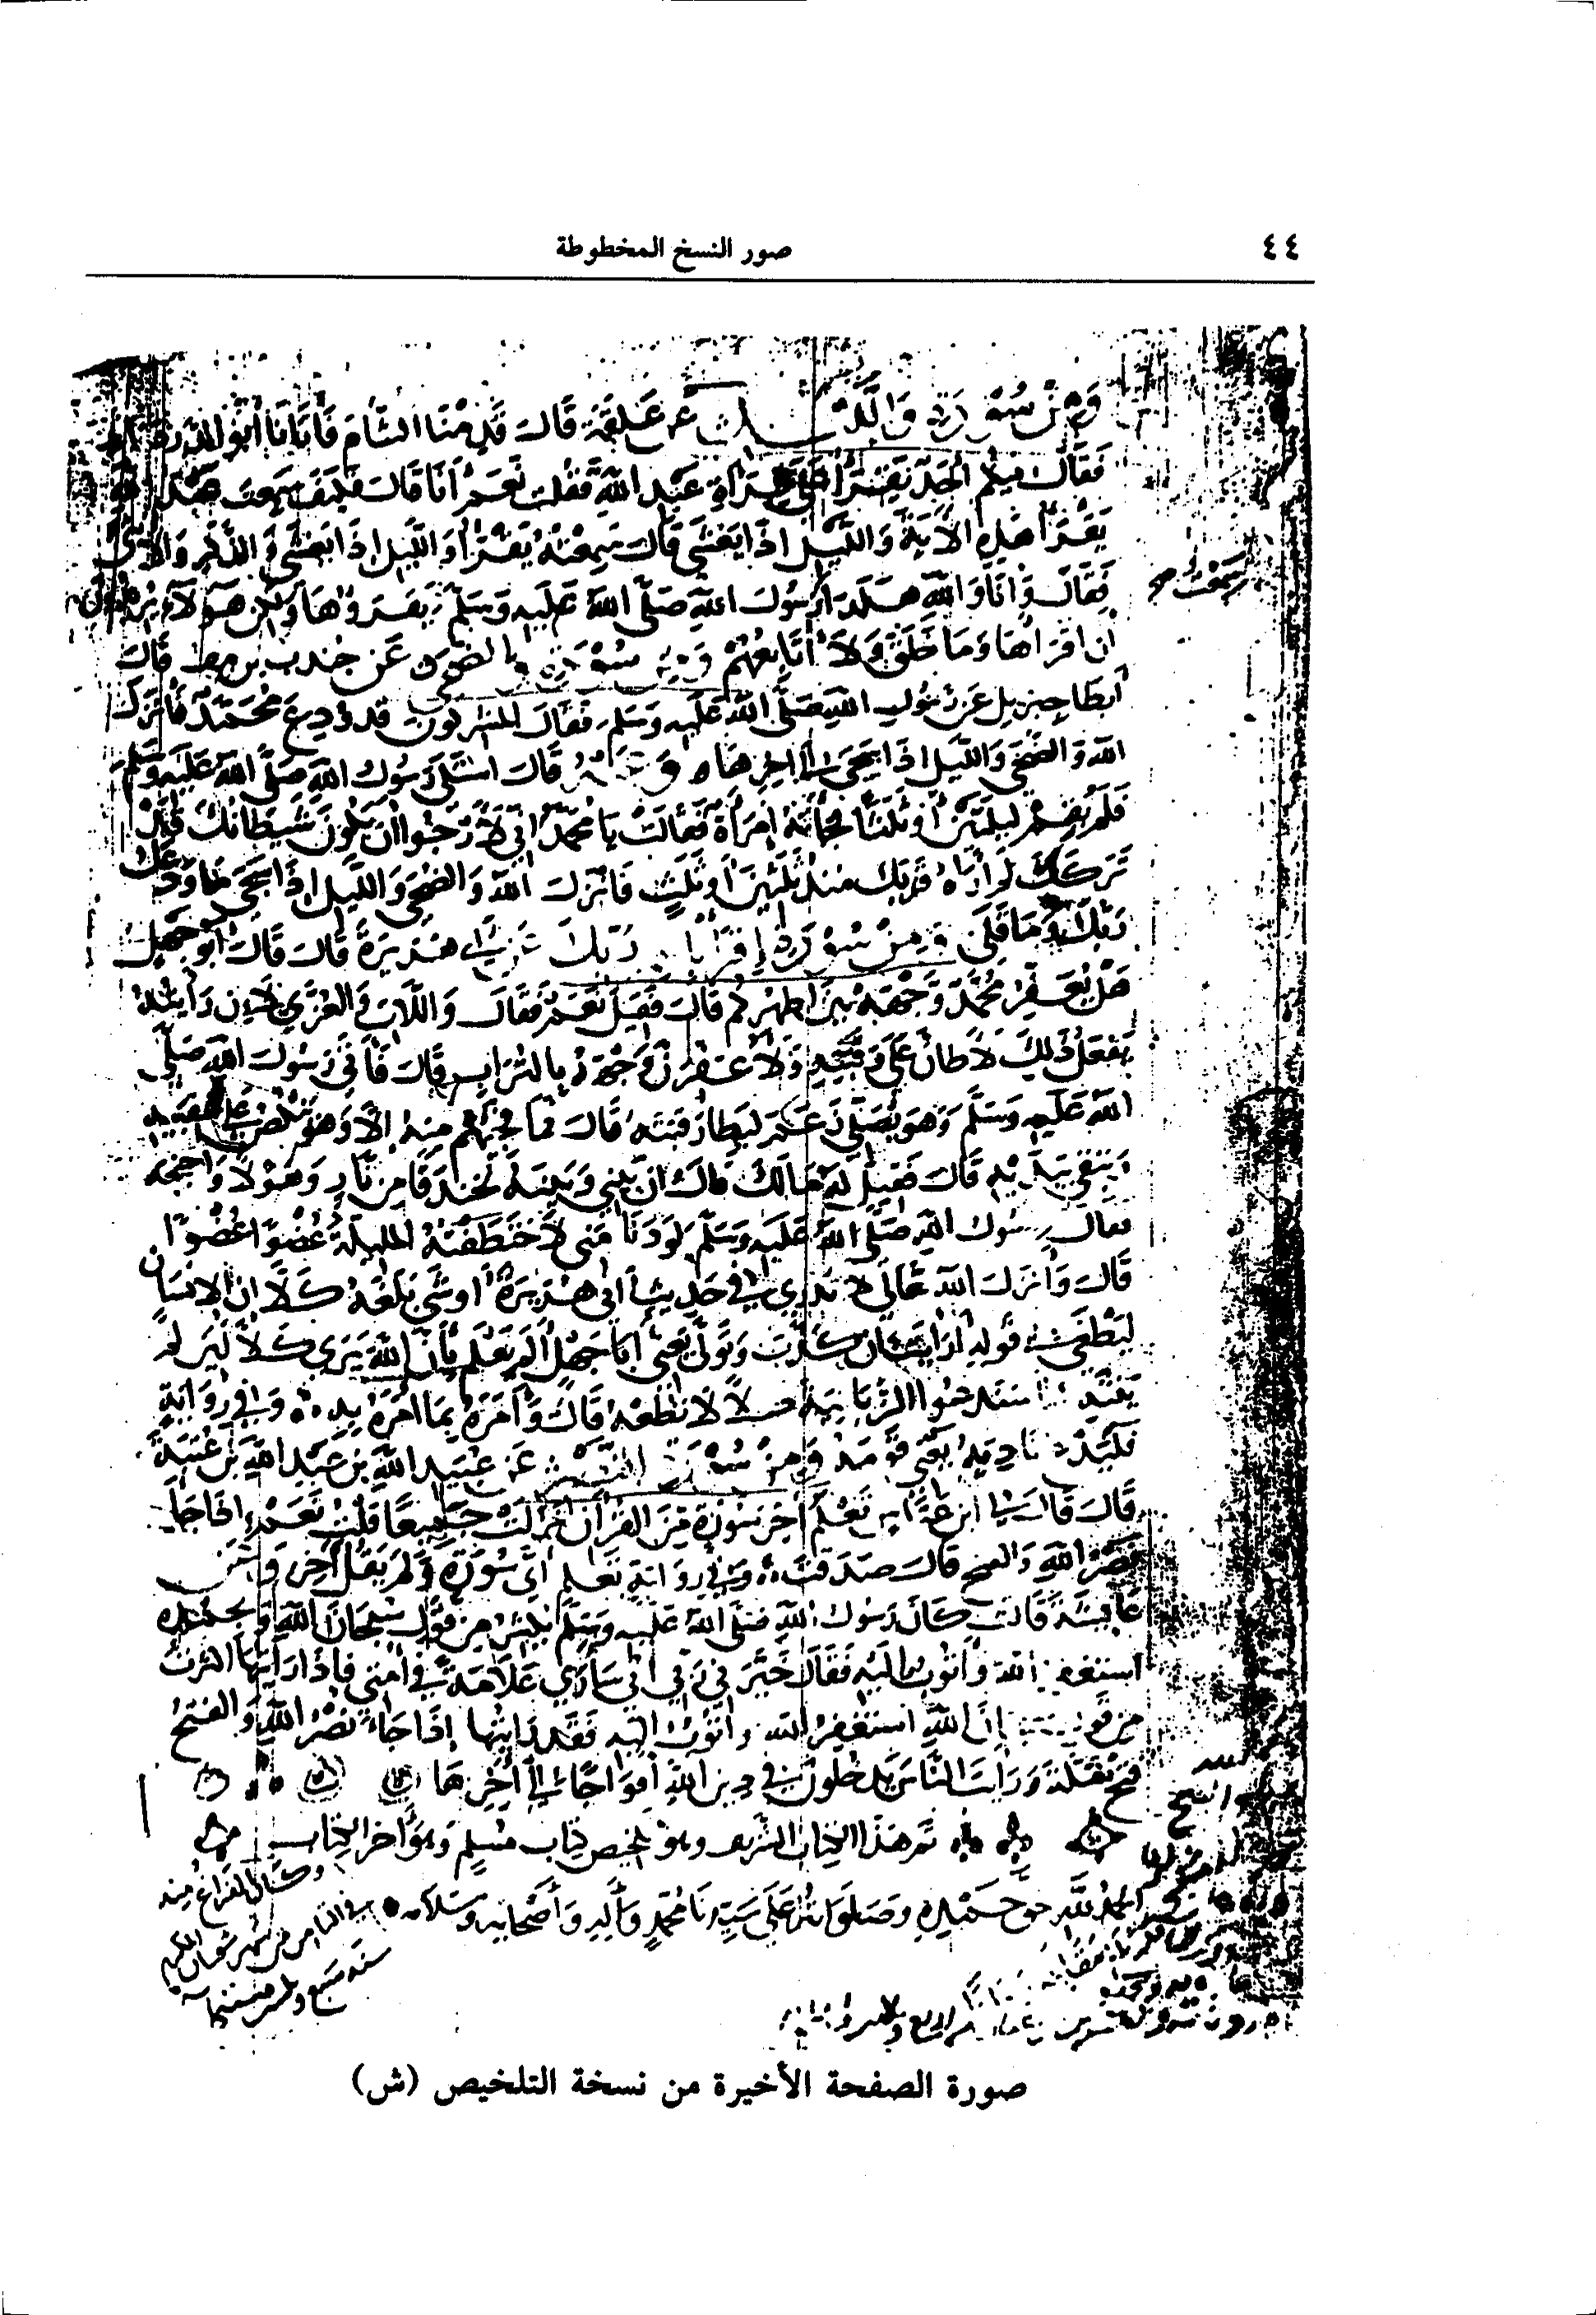 ٤٤
صور النسخ المخطوطة
ومن سورة والليل عن علقمة قال قدمنا الشام فأتانا أبو الدرداء
فقال فيكم أحد يقرأ على قراءة عبد الله فقلت نعم أنا قال فكيف سمعت عبد الله
يقرأ هذه الآية والليل إذا يغشى قال سمعته يقرأ والليل إذا يغشى والذكر والأنثى
سمعت
فقال وأنا والله هكذا رسول الله صلى الله عليه وسلم يقرؤها ولكن هؤلاء يريدون
أن أقرأها وما خلق ولا أتابعهم ومن سورة والضحى عن جندب بن قال
أبطا جبريل عن رسول الله صلى الله عليه وسلم فقال المشركون قد ودع محمد فأنزل
الله والضحى والليل إذا سجى إلى آخرها وعنه قال اشتكى رسول الله صلى الله عليه وسلم
فلم يقم ليلتين أو ثلثا فجاءته امرأة فقالت يا محمد اني لأرجوا أن يكون شيطانك قد
تركك لم أره قربك منذ ليلتين أو ثلث فأنزل الله والضحى والليل إذا سجى ما ودعك
ربك وما قلى ومن سورة إقرأ باسم ربك عن أبي هريرة قال قال أبو جهل
هل يعفر محمد وجهه بين أظهركم قال فقيل نعم فقال واللات والعزى لئن رأيته
يفعل ذلك لأطأن على رقبته ولأعفرن وجهه بالتراب قال فأتى رسول الله صلى
الله عليه وسلم وهو يصلي زعم ليطأ رقبته قال فما فجئهم منه إلا وهو ينكص على عقبيه
ويتقي بيديه قال فقيل له مالك قال ان بيني وبينه لخندقا من نار وهولا وأجنحة
فقال رسول الله صلى الله عليه وسلم لو دنا مني لاختطفته الملائكة عضوا عضوا
قال وأنزل الله تعالى لا ندري في حديث أبي هريرة أو شي بلغه كلا ان الإنسان
ليطغى قوله أرأيت إن كذب وتولى يعني أبا جهل ألم يعلم بأن الله يرى كلا لئن لم
ينته سندعوا الزبانية كلا لا تطعه قال وأمره بما أمره به وفي رواية
فليدع ناديه يعني قومه ومن سورة النصر عن عبيد الله بن عبد الله بن عتبة
قال قال لي ابن عباس تعلم آخر سورة من القرآن نزلت جميعا قلت نعم إذا جاء
نصر الله والفتح قال صدقت وفي رواية تعلم أي سورة ولم يقل آخر وعن
عائشة قالت كان رسول الله صلى الله عليه وسلم يكثر من قول سبحان الله وبحمده
استغفر الله وأتوب إليه فقال خبرني ربي أني سأرى علامة في أمتي فإذا رأيتها أكثرت
من قول سبحان الله استغفر الله وأتوب إليه فقد رأيتها إذا جاء نصر الله والفتح
فتح مكة ورأيت الناس يدخلون في دين الله أفواجا إلى آخرها
تم هذا الكتاب الشريف وهو تلخيص كتاب مسلم وهو آخر الكتاب
الحمد لله حق حمده وصلواته على سيدنا محمد وآله وأصحابه وسلامه
وكان الفراغ منه
في الثامن من شهر
سنة سبع
صورة الصفحة الأخيرة من نسخة التلخيص (ش)